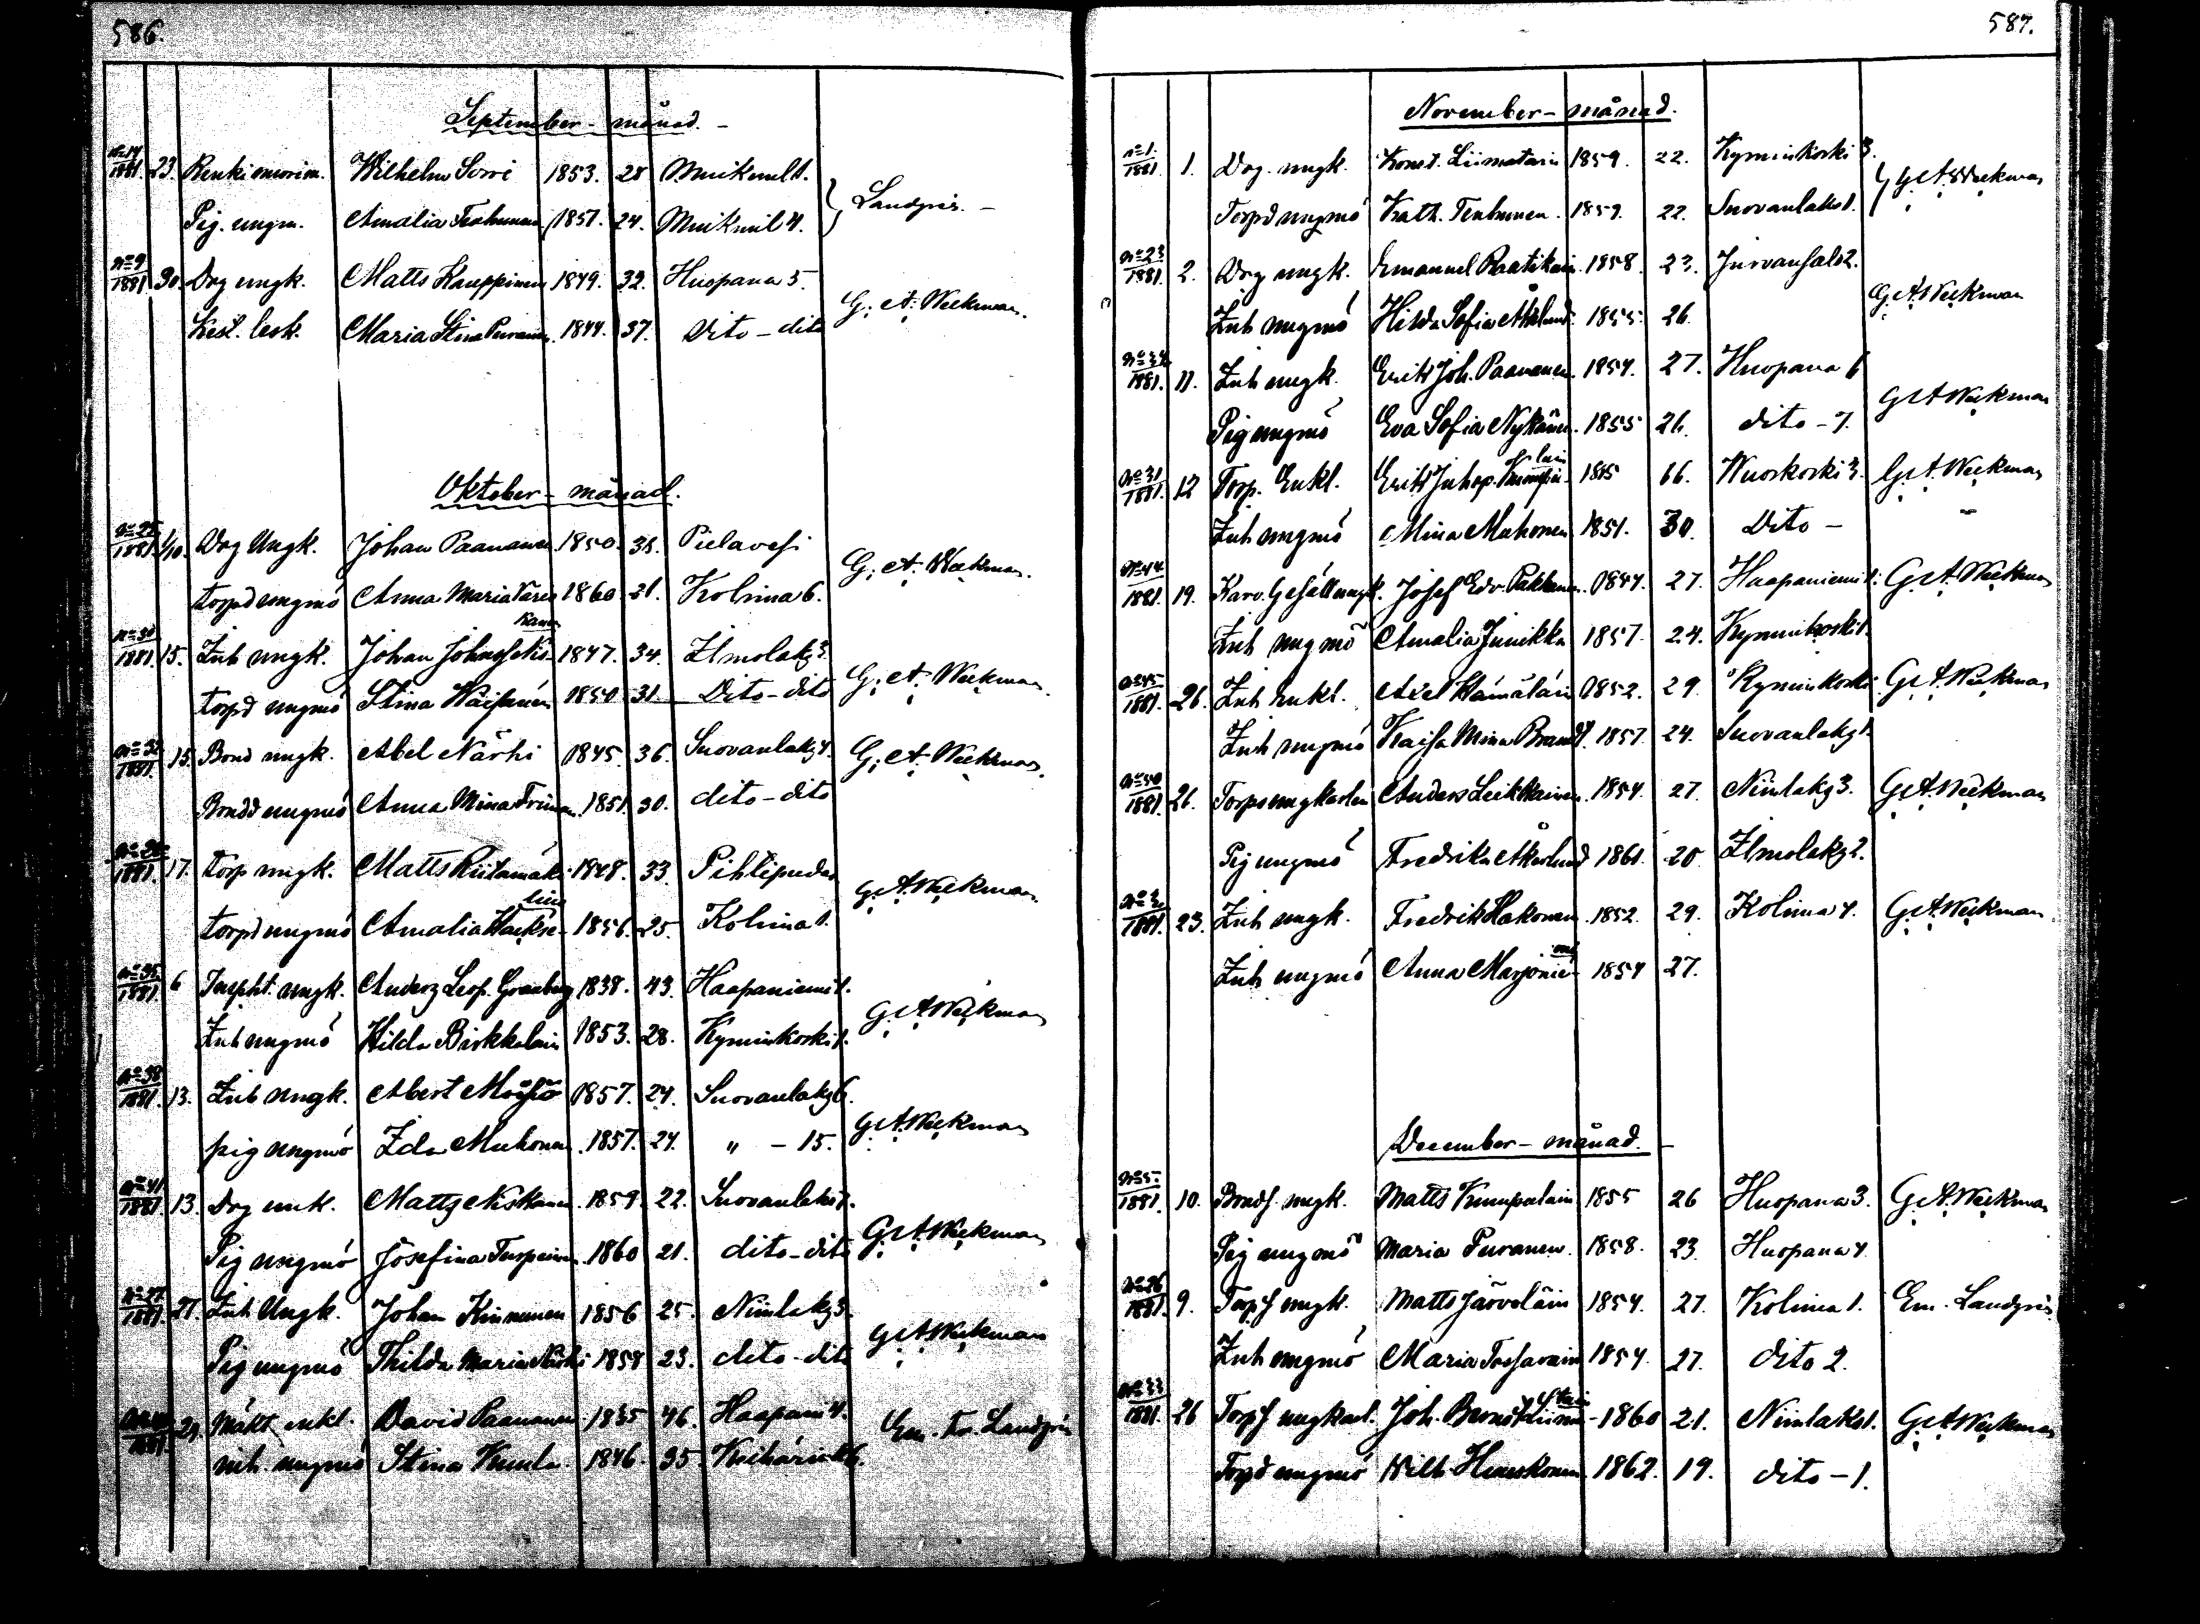 586.
September - månad. -
No 14/1881. 23. Renki nuorim. Wilhelm Sorri 1853. 28 Muikunl 1. Landgrén. -
Pig. ungm. Amalia 1857. 24. Muikunl 4.
No 9/1881 30. Drg ungk. Matts Kauppinen 1849. 32. Huopana 5. G. A. Weckman.
Kest. lesk. Maria Stina 1844. 37. Dito - dito
Oktober - månad.
No 25/1881. 1/10. Drg Ungk. Johan Paananen 1850. 31. Pielavesi G. A. Weckman.
torpd ungmö Anna Maria 1860 21. Kolima 6.
1881. 15. Inh ungk. Johan Johnss Niskanen 1847. 34. Ilmolax 3. G. A. Weckman.
torpd ungmö Stina Wäisänen 1850. 31. Dito - dito
No 32/1881. 15. Bond ungk. Abel Närhi 1845. 36. Suovanlax 4. G. A. Weckman.
Bondd ungmö Anna Mina 1851. 30. dito - dito
1881. 17. torp ungk. Matts Riitamäki 1848. 33. Pihtipudas G. A. Weckman.
torpd ungmö Amalia 1856. 25. Kolima 1.
No 35/1881. 6 Inspkt. ungk. Anders Leop. Granberg 1838. 43. Haapaniemi 1. G. A. Weckman
Inh ungmö Hilda Pirkkalain 1853. 28. Kyminkoski 1.
No 38/1881. 13. Inh ungk. Abert 1857. 24. Suovanlax 6. G. A. Weckman
pig ungmö Ida Muhonen 1857. 24. " - 15.
No 41/1881. 13. Drg unk. Matts Niskanen 1859. 22. Suovanlaks 7. G. A. Weckman
Pig ungmö Josefina Turpeinen 1860 21. dito - dito
No 27/1881. 27. Inh Ungk. Johan Kinnunen 1856 25. Niinilax 3. G. A. Weckman
Pig ungmö Thilda Maria Närhi 1858 23. dito - dito
1881. 29. enkl. David Paananen 1835 46. Haapani 4. Em. Fr. Landgrén
inh. ungmö Stina 1846. 35.
587.
November - månad.
No 1./1881. 1. Drg. ungk. Konst. Liimatain 1859. 22. Kyminkoski 3. G. A. Weckman
Torpd ungmö Kath. Tenhunen. 1859. 22. Suovanlaks 1.
No 23/1881. 2. Drg ungk. Emanuel Raatikain. 1858. 23. G. A. Weckman
Inh ungmö Hilda Sofia 1855. 26.
No 34/1881. 11. Inh ungk. Erik Joh. Paananen. 1854. 27. Huopana 6 G A Weckman
Pig ungmö Eva Sofia Nykänen. 1855 26. dito - 7.
No 31/1881. 12 Torp. Enkl. Erik Juhop. 1815 66. Wuoskoski 3. G. A. Weckman
Inh ungmö Mina Muhonen 1851. 30. Dito - "
No 44/1881. 19. Karv. Gesällungk. Josef Edv. Pakkanen. 1854. 27. Haapaniemi 1. G. A. Weckman
Inh ungmö Amalia Junikka 1857. 24. Kyminkoski 1.
No 45/1881. 26. Inh enkl. Axel Hämäläin 1852. 29. Kyminkoski G. A. Weckman
Inh ungmö Kaisa Mina Brandt. 1857. 24. Suovanlax 1.
No 50/1881 26. Torps ungkarlen Anders Leikkainen. 1854. 27. Niinilax 3. G. A. Weckman
Pig ungmö Fredrika Åkerlund 1861. 20. Ilmolax 2.
1881. 23. Inh ungk. Fredrik Hakonen 1852. 29. Kolima 4. G. A. Weckman
Inh ungmö Anna Marjoniemi 1854 27.
December - månad. -
1881. 10. Bonds. ungk. Matts Kumpulain 1855 26 Huopana 3. G. A. Weckman
Pig ungmö Maria Puranen. 1858. 23. Huopana 4.
No 26/1881. 9. Torps ungk. Matts Järveläin 1854. 27. Kolima 1. Em. Landgrén
Inh ungmö Maria Tossavain 1854. 27. dito 2.
No 33/1881. 26 Torps ungkarl. Joh. 1860 21. Niinilaks 1. G. A. Weckman
Torpd ungmö Wilh. 1862. 19. dito - 1.